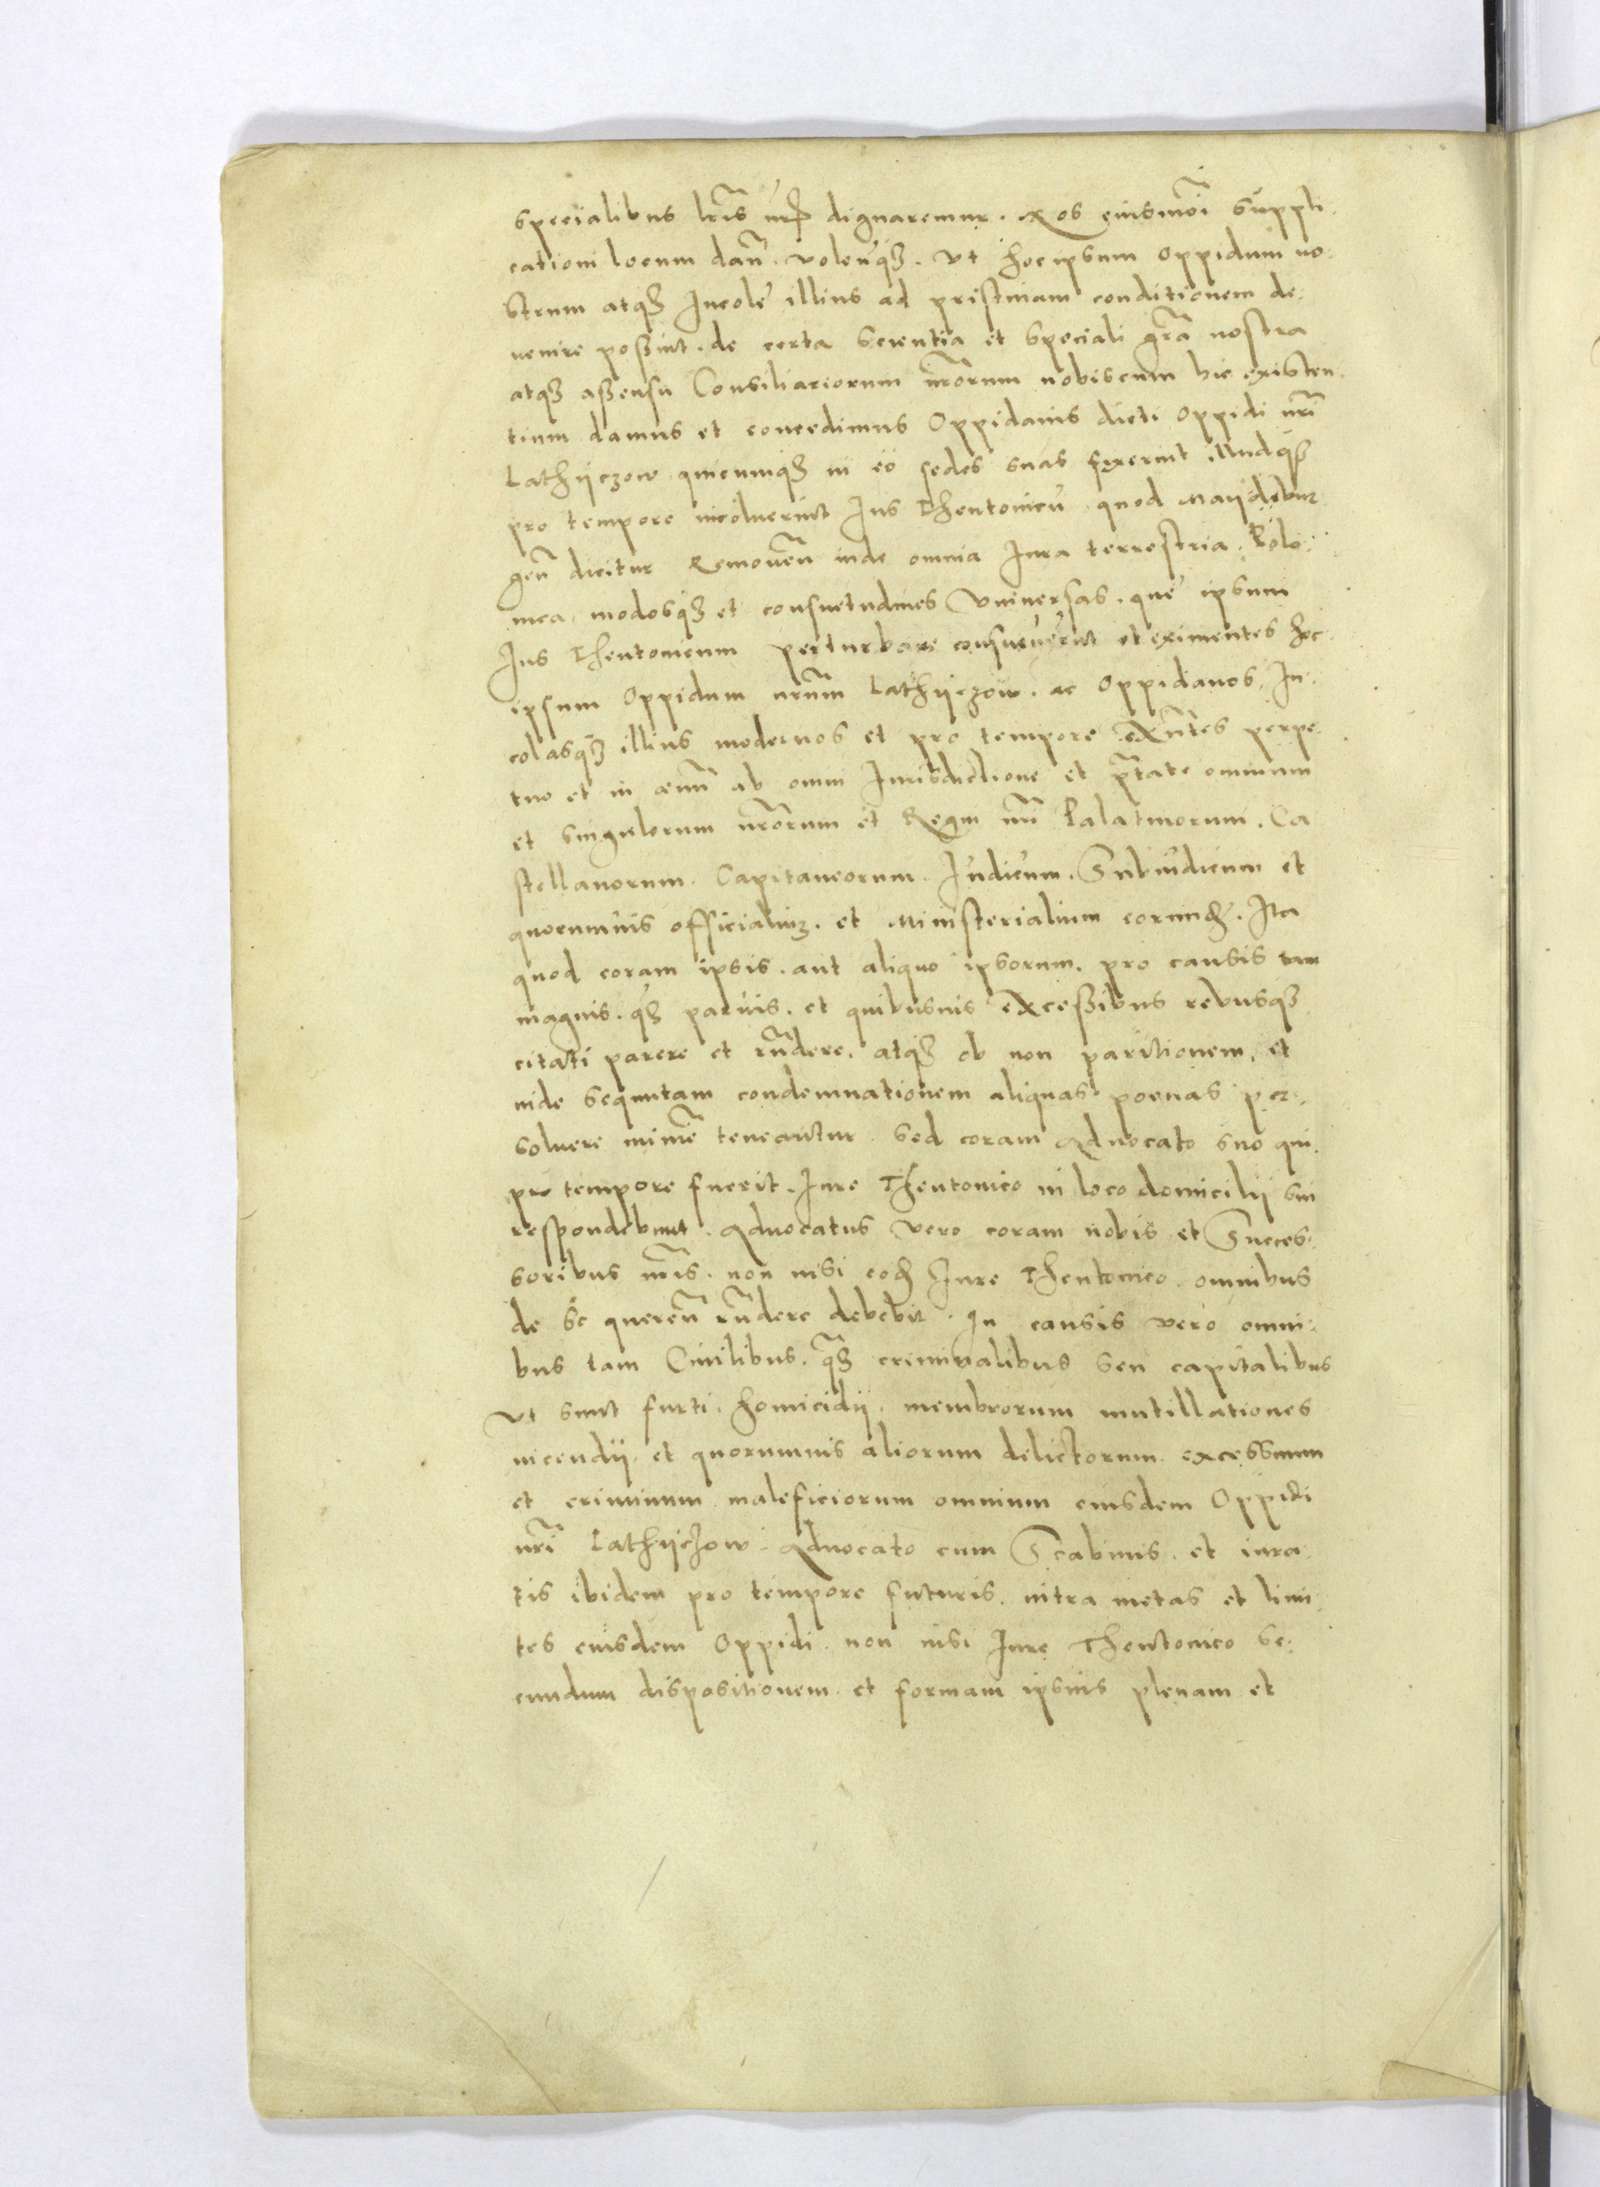 specialibus lr̃is nr̃is dignaremur. Nos eiusmõi suppli-
cationi locum dan̄. volen̄q3. Vt hoc ipsum Oppidum no-
strum atq3 Incole illius ad pristinam conditionem de-
uenire possint. de certa scientia et speciali gr̃a nostra
atq3 assensu Consiliariorum nr̃orum nobiscum hic existen-
tium damus et concedimus Oppidanis dicti Oppidi nr̃i
Lathyczow quicunq3 in eo sedes suas fixerint
pro tempore incoluerint Ius Theutonicū quod Maydebur-
gen̄ dicitur Remouen̄ inde omnia Iura terrestria. Polo-
nica modosq3 et consuetudines Vniuersas. que ipsum
Ius Theutonicum perturbare consueuerunt et eximentes hoc
ipsum Oppidum nr̃um Lathyczow. ac Oppidanos. In-
colasq3 illius modernos et pro tempore exn̄tes perpe-
tuo et in æuū ab omni Iurisdictione et ptãte omnium
et singulorum nr̃orum et Regni nr̃i Palatinorum. Ca
stellanorum. Capitaneorum. Iudicum. Subiudicum et
quorumuis officialiu3. et Ministerialium eorund. Ita
quod coram ipsis. aut aliquo ipsorum. pro causis tam
magnis. q3 paruis. et quibusuis excessibus rebusq3
citati parere et rñdere. atq3 ob non paritionem, et
inde sequutam condemnationem aliquas poenas per-
soluere minime teneantur. sed coram Aduocato suo qui
pro tempore fuerit. Iure Theutonico in loco domicilij sui
respondebunt. Aduocatus vero coram nobis et Succes-
soribus nr̃is. non nisi eod Iure Theutonico. omnibus
de se queren̄ rñdere debebit. In causis vero omni-
bus tam Ciuilibus. q̃3 criminalibus seu capitalibus
Vt sunt furti. homicidij. membrorum mutillationes
incendij. et quorumuis aliorum delictorum. excessuum
et criminum maleficiorum omnium eiusdem Oppidi
nr̃i Lathyczow. Aduocato cum Scabinis. et iura-
tis ibidem pro tempore futuris. intra metas et limi-
tes eiusdem Oppidi. non nisi Iure Theutonico se-
cundum dispositionem. et formam ipsius plenam et